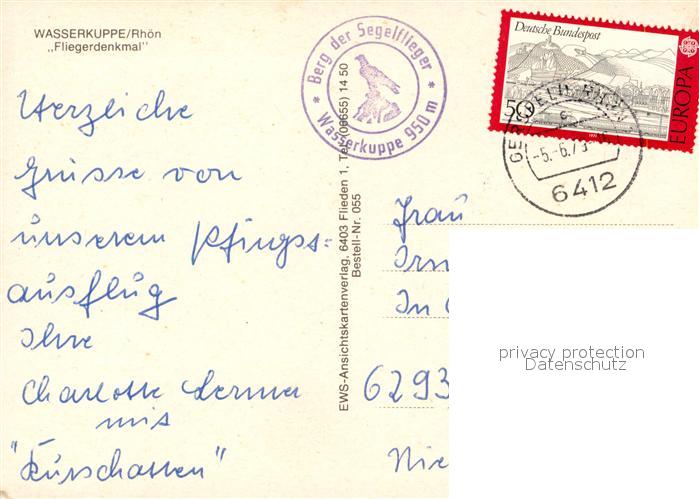 WASSERKUPPE/Rhön
„Fliegerdenkmal"
Herzliche
Grüsse von
unserem Pfingst=
ausflug
Ihre
Charlotte
mit
"Kurschatten"
* Berg der Segelflieger *
Wasserkuppe 950 m
EWS-Ansichtskartenverlag, 6403 Flieden 1, Tel. (06655) 14 50
Bestell-Nr. 055
Deutsche Bundespost
50
EUROPA
-5.-6.7
6412
Frau
In
6293
privacy protection
Datenschutz